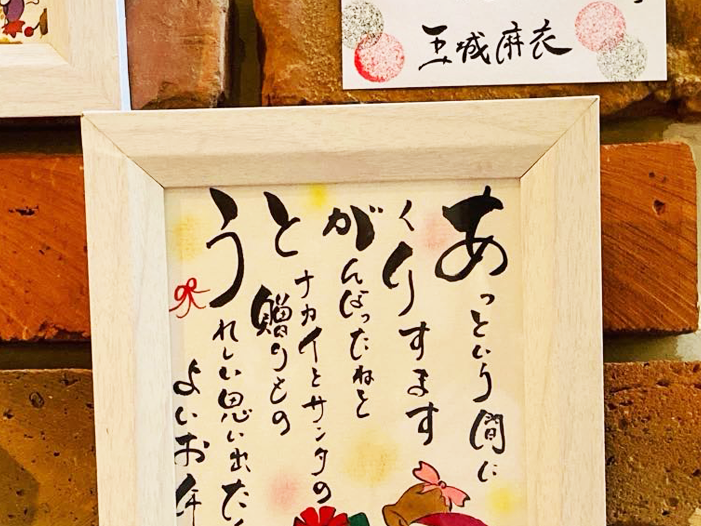 玉城麻衣
あっという間に
くりすます
がんばったねと
トナカイとサンタの
贈りもの
うれしい思い出たく
よいお年